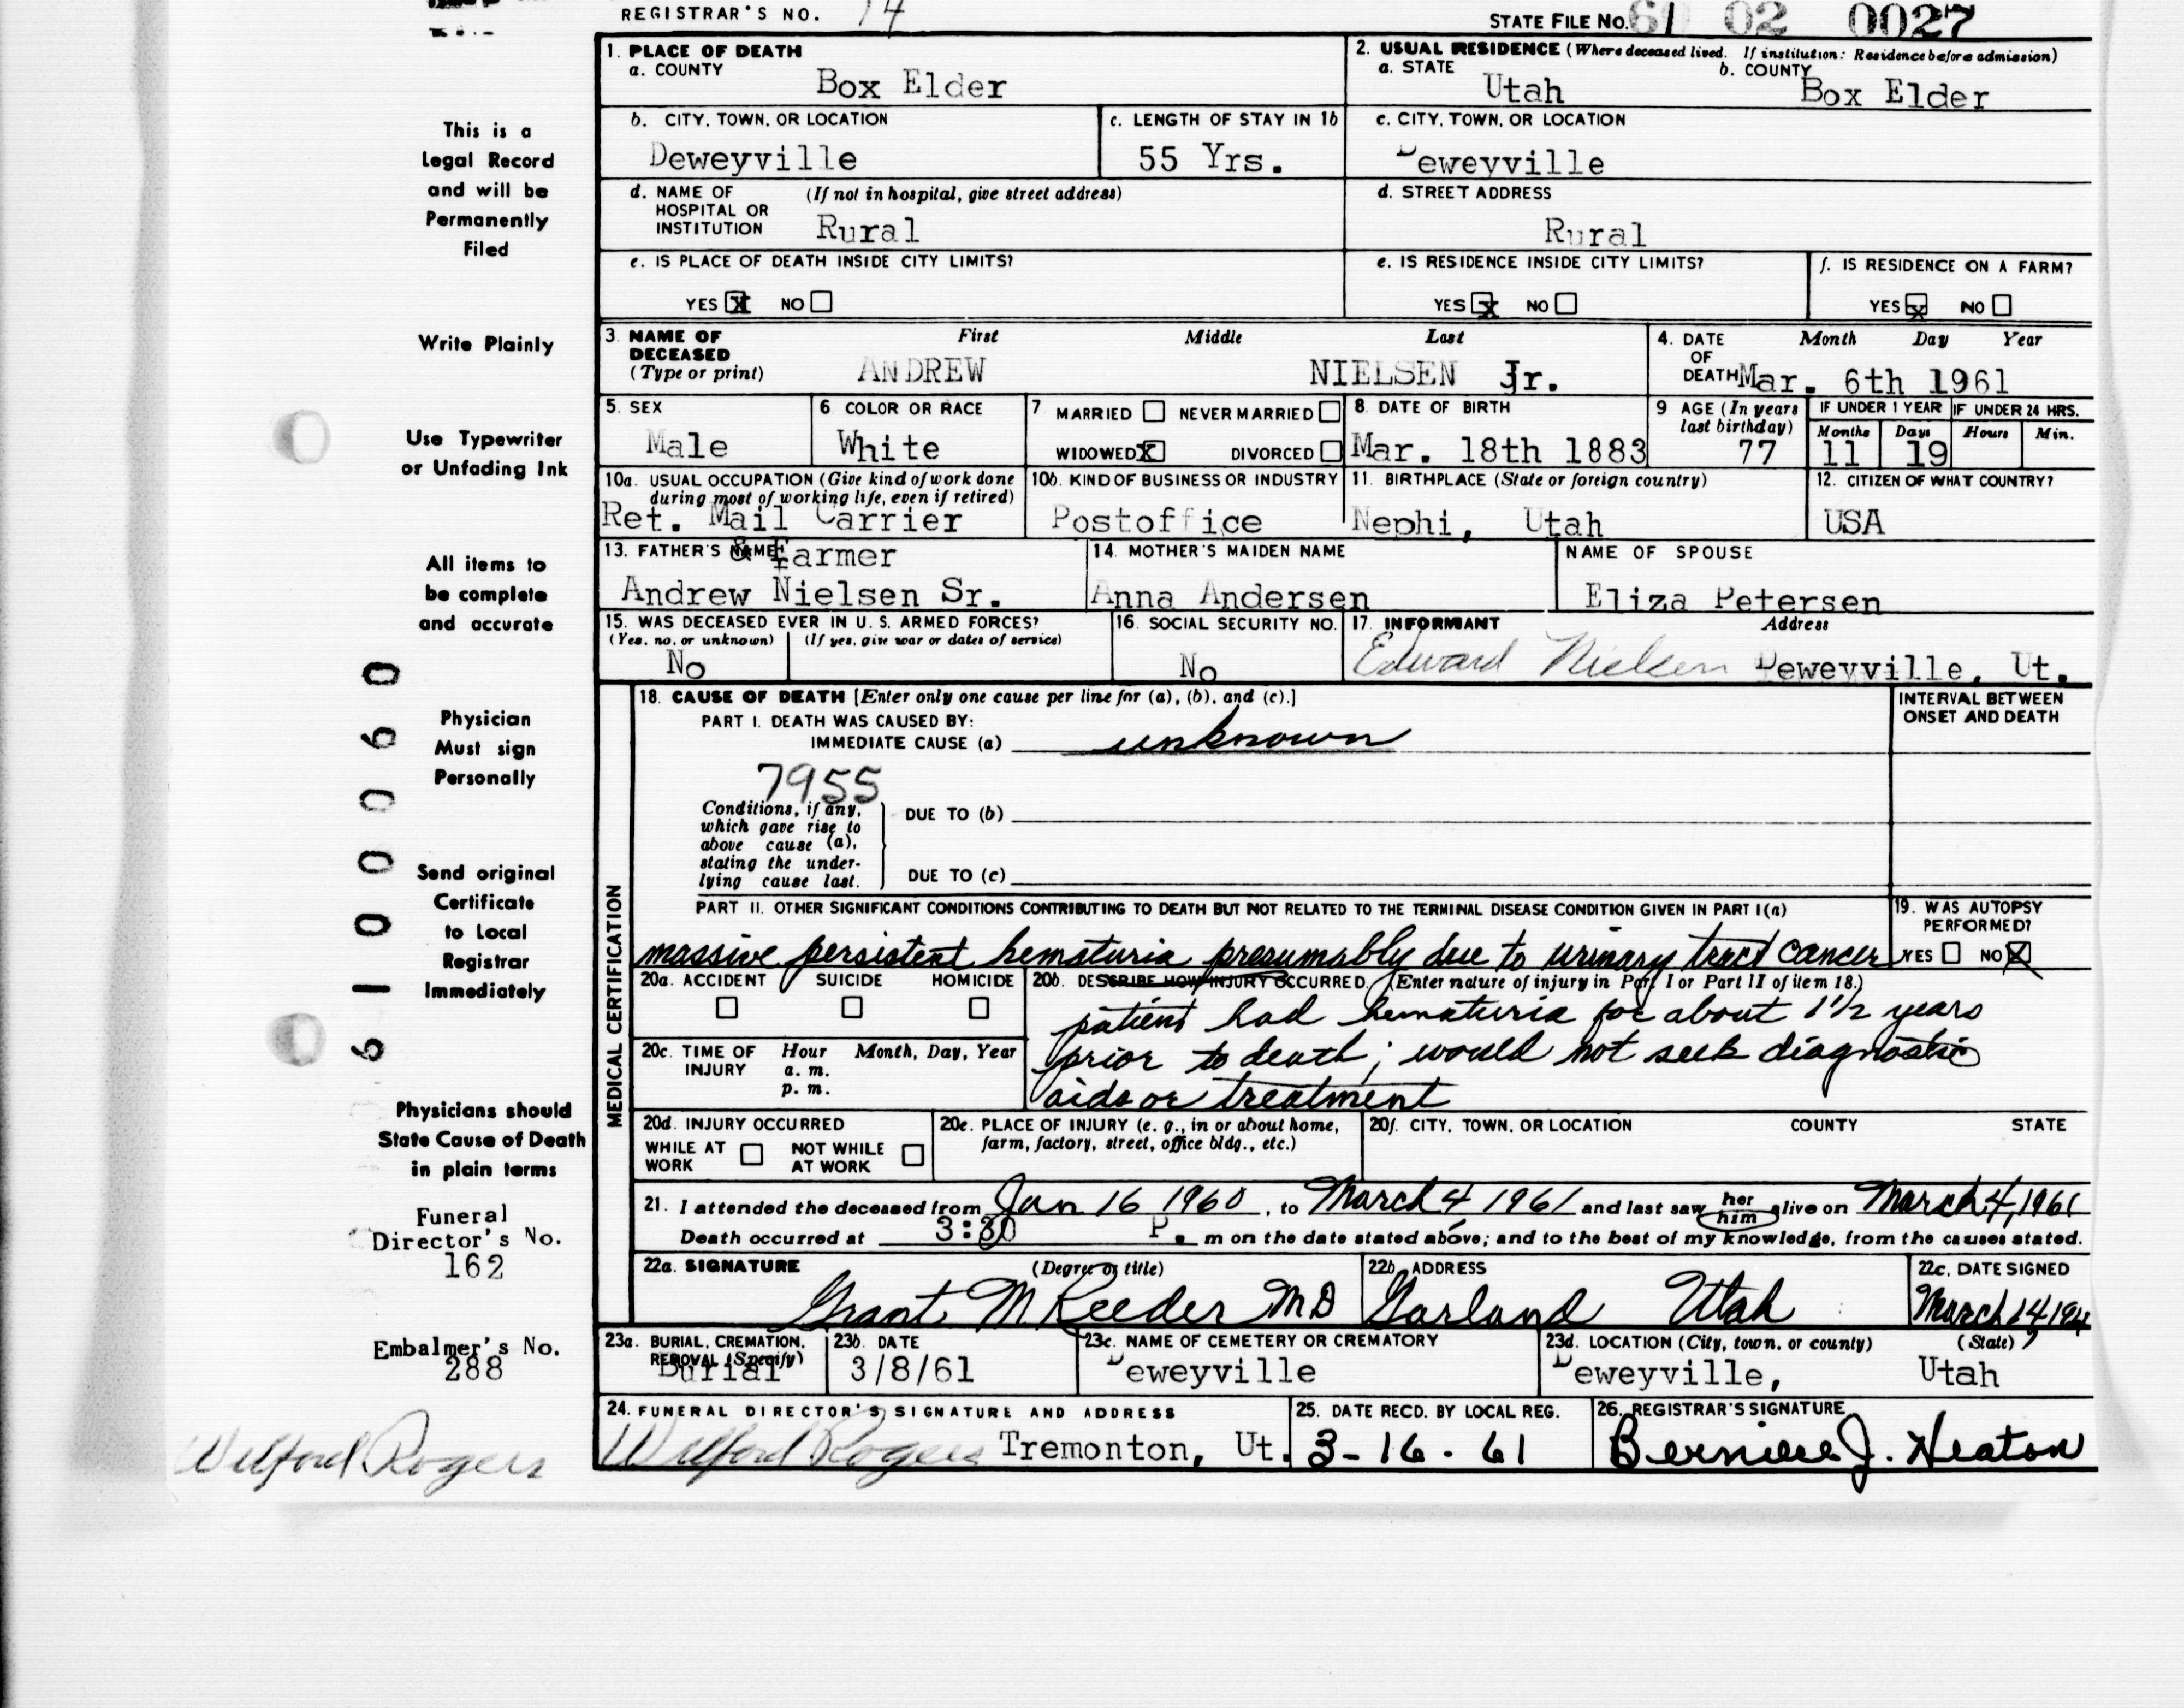 REGISTRAR'S NO. 14
STATE FILE No. 61 02 0027
1. PLACE OF DEATH
a. COUNTY
Box Elder
2. USUAL RESIDENCE (Where deceased lived. If institution: Residence before admission)
a. STATE
Utah
b. COUNTY
Box Elder
b. CITY, TOWN, OR LOCATION
Deweyville
c. LENGTH OF STAY IN 1b
55 Yrs.
c. CITY, TOWN, OR LOCATION
Deweyville
d. NAME OF HOSPITAL OR INSTITUTION
(If not in hospital, give street address)
Rural
d. STREET ADDRESS
Rural
e. IS PLACE OF DEATH INSIDE CITY LIMITS?
YES X NO
e. IS RESIDENCE INSIDE CITY LIMITS?
YES X NO
f. IS RESIDENCE ON A FARM?
YES X NO
3. NAME OF DECEASED (Type or print)
First Middle Last
ANDREW NIELSEN Jr.
4. DATE OF DEATH
Month Day Year
Mar. 6th 1961
5. SEX
Male
6 COLOR OR RACE
White
7 MARRIED NEVER MARRIED
WIDOWED X DIVORCED
8. DATE OF BIRTH
Mar. 18th 1883
9 AGE (In years last birthday)
77
IF UNDER 1 YEAR
Months Days
11 19
IF UNDER 24 HRS.
Hours Min.
10a. USUAL OCCUPATION (Give kind of work done during most of working life, even if retired)
Ret. Mail Carrier
& Farmer
10b. KIND OF BUSINESS OR INDUSTRY
Postoffice
11. BIRTHPLACE (State or foreign country)
Nephi, Utah
12. CITIZEN OF WHAT COUNTRY?
USA
13. FATHER'S NAME
Andrew Nielsen Sr.
14. MOTHER'S MAIDEN NAME
Anna Andersen
NAME OF SPOUSE
Eliza Petersen
15. WAS DECEASED EVER IN U. S. ARMED FORCES?
(Yes, no, or unknown) (If yes, give war or dates of service)
No
16. SOCIAL SECURITY NO.
No
17. INFORMANT Address
Edward Nielsen Deweyville, Ut.
MEDICAL CERTIFICATION
18. CAUSE OF DEATH [Enter only one cause per line for (a), (b), and (c).]
PART I. DEATH WAS CAUSED BY:
IMMEDIATE CAUSE (a) unknown
7955
Conditions, if any, which gave rise to above cause (a), stating the underlying cause last.
DUE TO (b)
DUE TO (c)
INTERVAL BETWEEN ONSET AND DEATH
PART II. OTHER SIGNIFICANT CONDITIONS CONTRIBUTING TO DEATH BUT NOT RELATED TO THE TERMINAL DISEASE CONDITION GIVEN IN PART I(a)
massive persistent hematuria presumably due to urinary tract cancer
19. WAS AUTOPSY PERFORMED?
YES NO X
20a. ACCIDENT SUICIDE HOMICIDE
20b. DESCRIBE HOW INJURY OCCURRED. (Enter nature of injury in Part I or Part II of item 18.)
patient had hematuria for about 1 1/2 years
prior to death; would not seek diagnostic
aids or treatment
20c. TIME OF INJURY
Hour Month, Day, Year
a. m.
p. m.
20d. INJURY OCCURRED
WHILE AT WORK NOT WHILE AT WORK
20e. PLACE OF INJURY (e. g., in or about home, farm, factory, street, office bldg., etc.)
20f. CITY, TOWN, OR LOCATION COUNTY STATE
21. I attended the deceased from Jan 16 1960, to March 4 1961 and last saw her him alive on March 4, 1961
Death occurred at 3:30 P. m on the date stated above; and to the best of my knowledge, from the causes stated.
22a. SIGNATURE (Degree or title)
Grant M Reeder MD
22b ADDRESS
Garland Utah
22c. DATE SIGNED
March 14
23a. BURIAL, CREMATION, REMOVAL (Specify)
Burial
23b. DATE
3/8/61
23c. NAME OF CEMETERY OR CREMATORY
Deweyville
23d. LOCATION (City, town, or county) (State)
Deweyville, Utah
24. FUNERAL DIRECTOR'S SIGNATURE AND ADDRESS
Wilford Rogers Tremonton, Ut.
25. DATE RECD. BY LOCAL REG.
3-16-61
26. REGISTRAR'S SIGNATURE
Berniece J. Heaton
This is a
Legal Record
and will be
Permanently
Filed
Write Plainly
Use Typewriter
or Unfading Ink
All items to
be complete
and accurate
Physician
Must sign
Personally
Send original
Certificate
to Local
Registrar
Immediately
Physicians should
State Cause of Death
in plain terms
Funeral
Director's No.
162
Embalmer's No.
288
Wilford Rogers
61000060